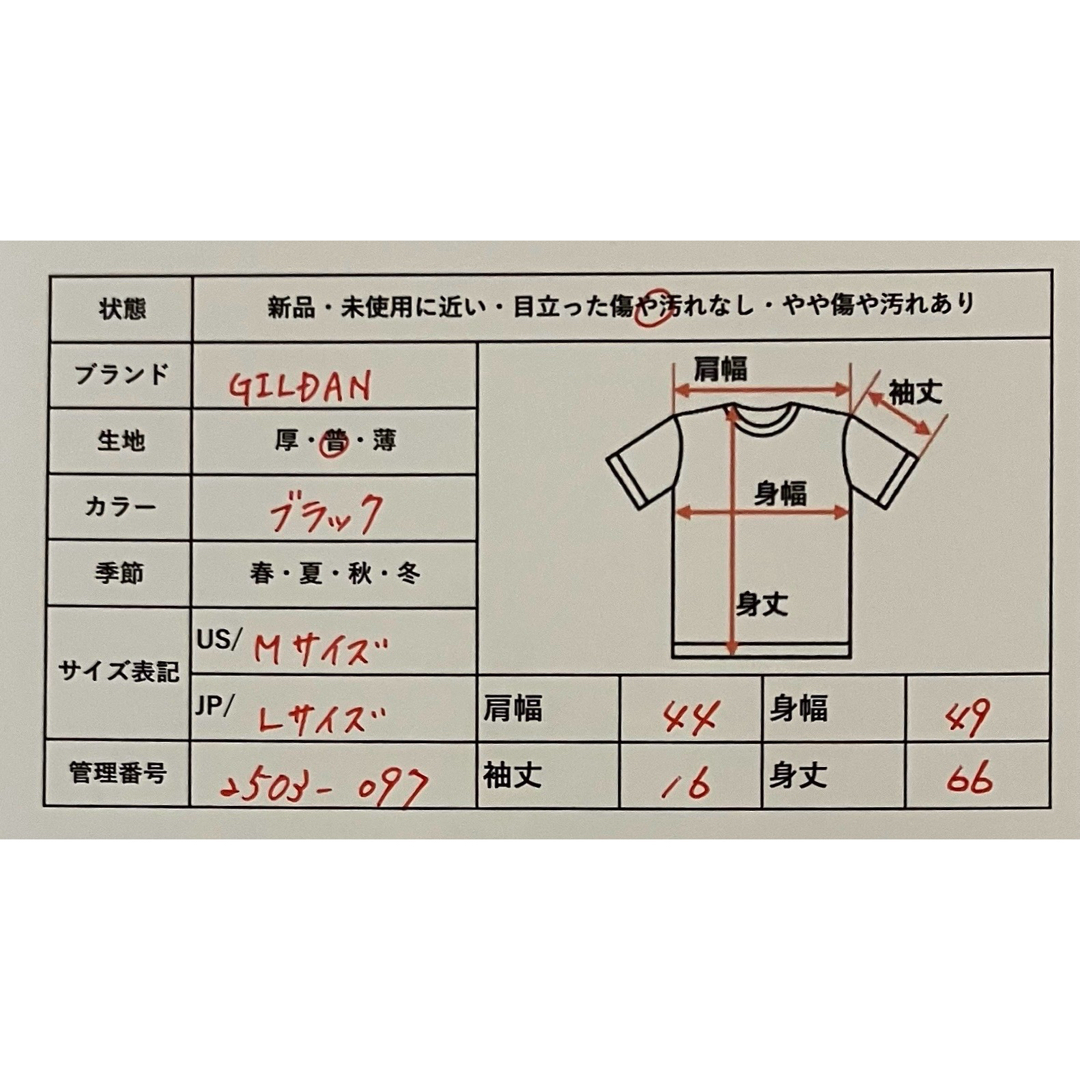 状態 新品・未使用に近い・目立った傷や汚れなし・やや傷や汚れあり
ブランド GILDAN
生地 厚・普・薄
カラー ブラック
季節 春・夏・秋・冬
サイズ表記 US/ Mサイズ
JP/ Lサイズ
管理番号 2503-097
肩幅
袖丈
身幅
身丈
肩幅 44 身幅 49
袖丈 16 身丈 66